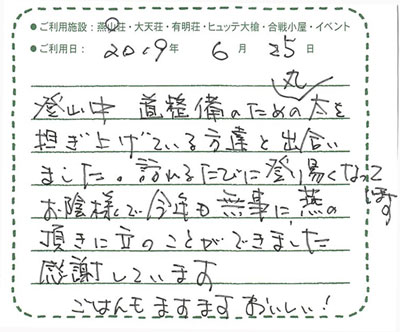 ●ご利用施設：燕山荘・大天荘・有明荘・ヒュッテ大槍・合戦小屋・イベント
●ご利用日： 2019年 6月 25日
登山中 道整備のための丸太を
担ぎ上げている方達と出合い
ました。訪れるたびに登り易くなって
います
お陰様で今年も無事に、燕の
頂きに立つことができました
感謝しています
ごはんもますますおいしい！